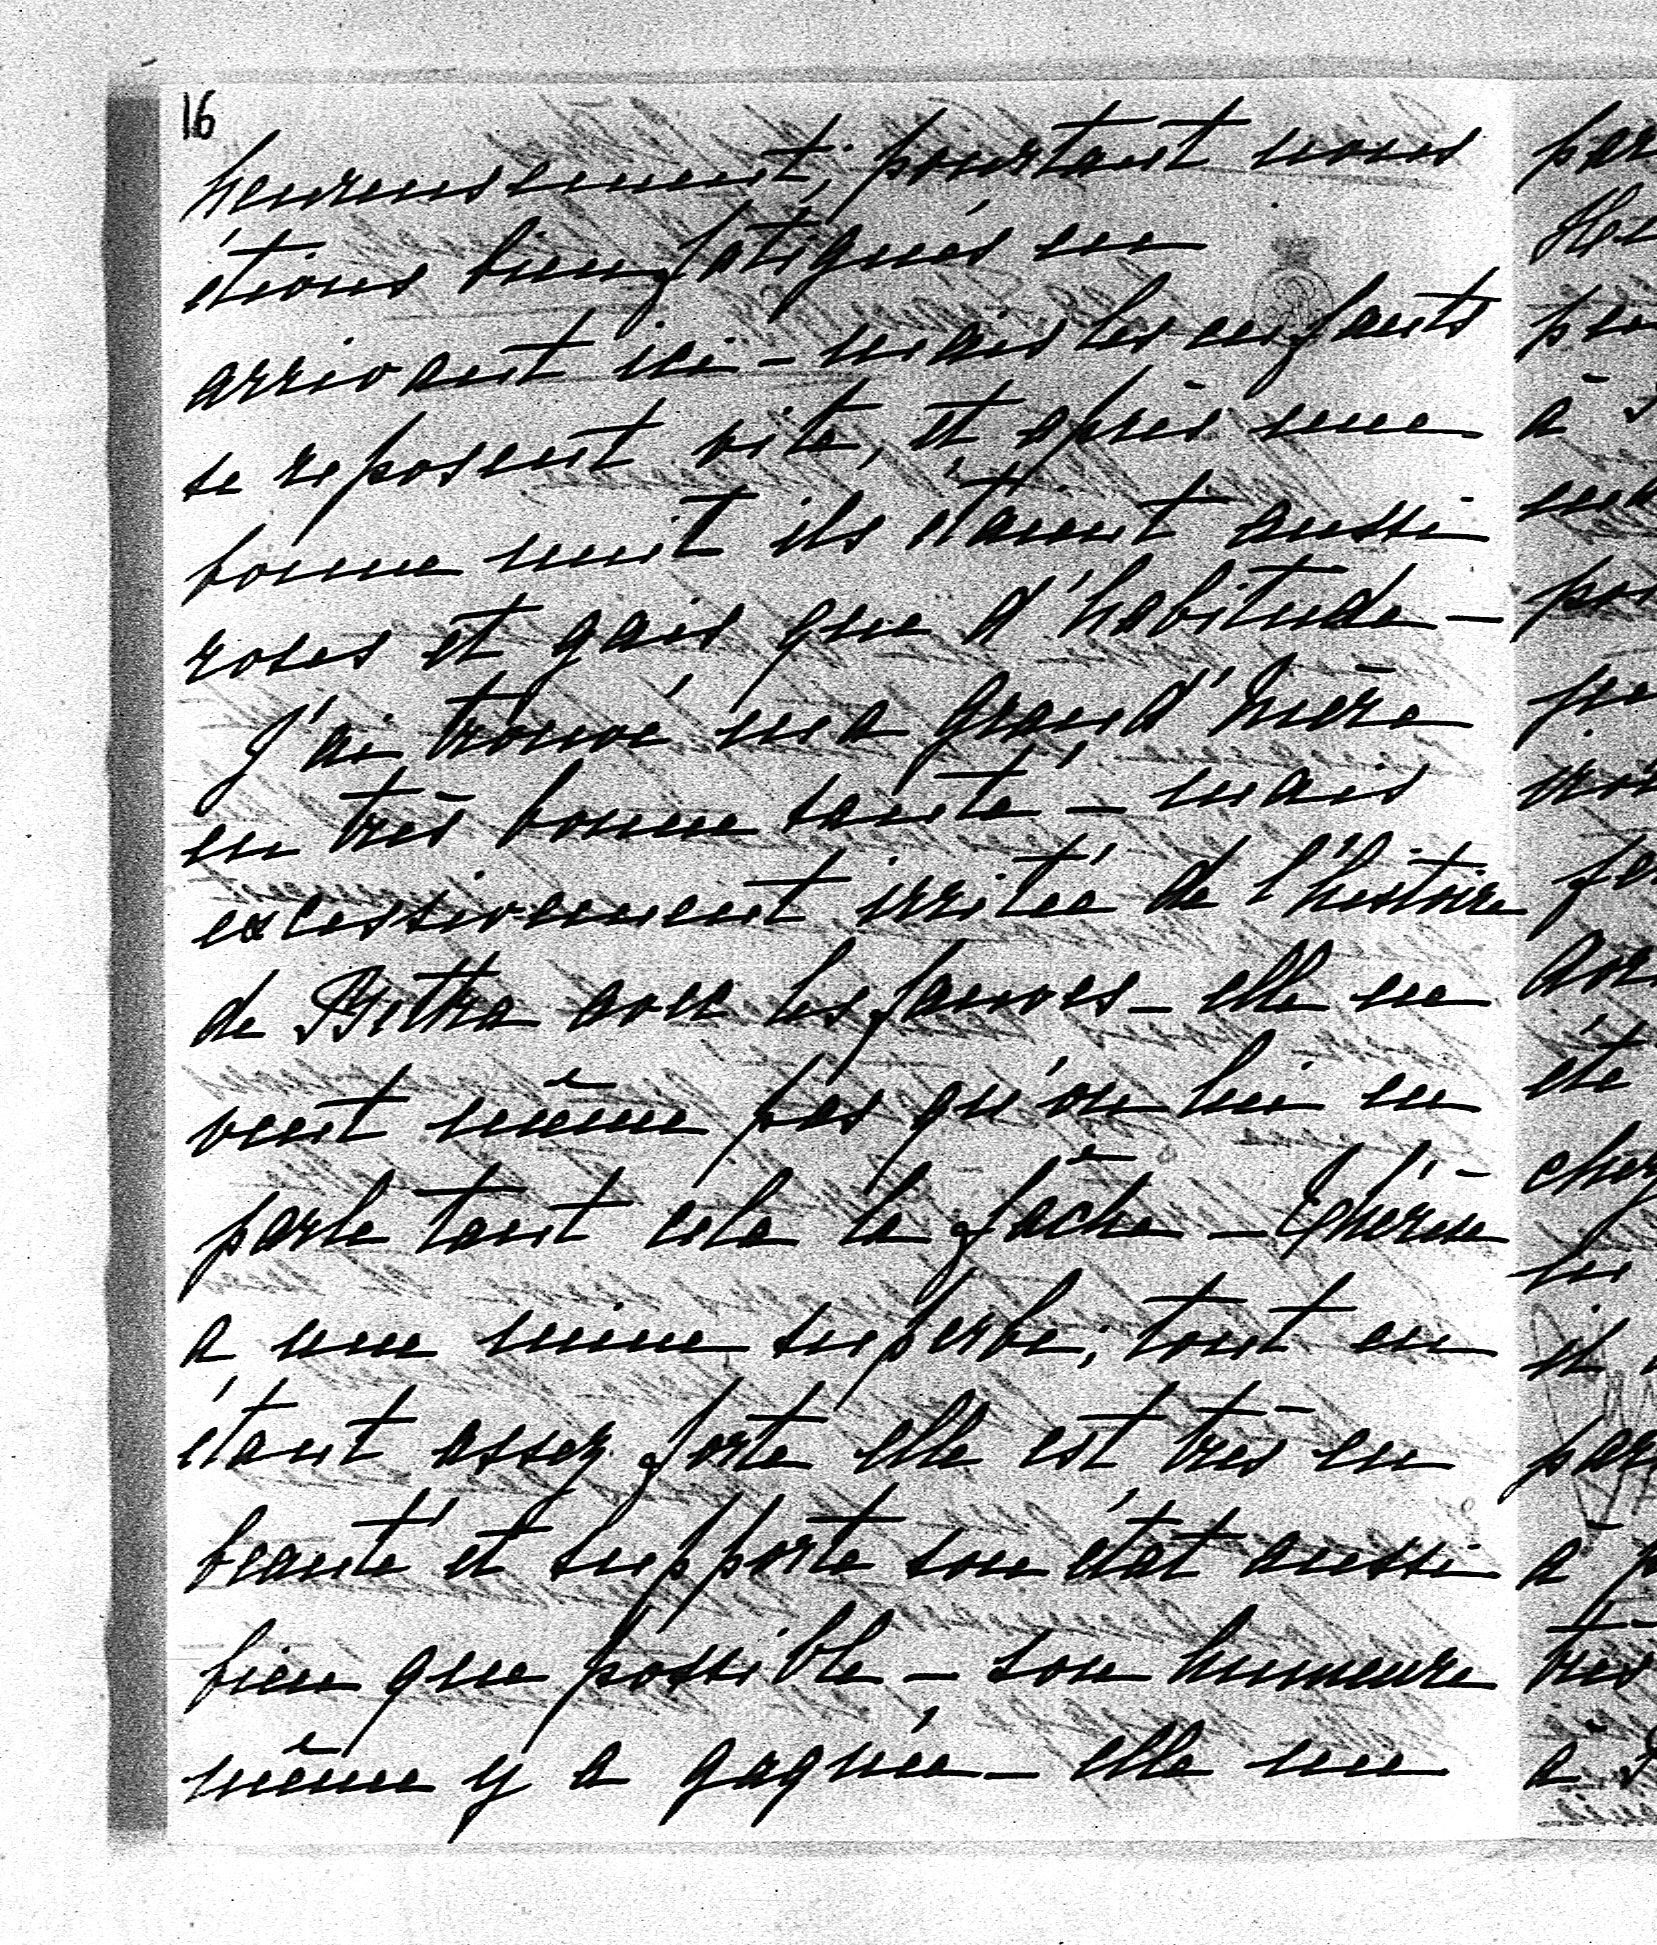 16
heureusement; pourtant nous
étions bien fatigués en
arrivant ici - mais les enfants
se reposent vite, et après une
bonne nuit ils étaient aussi
roses et gais que d'habitude -
J'ai trouvé ma Grand'Mère
en très bonne santé - mais
excessivement irritée de l'histoire
de avec les fauves - elle ne
veut même pas qu'on lui en
parle tant cela la fâche - Thérèse
a une mine superbe; tout en
étant assez forte elle est très en
beauté et supporte son état aussi
bien que possible - son humeure
même y a gagnée - elle me